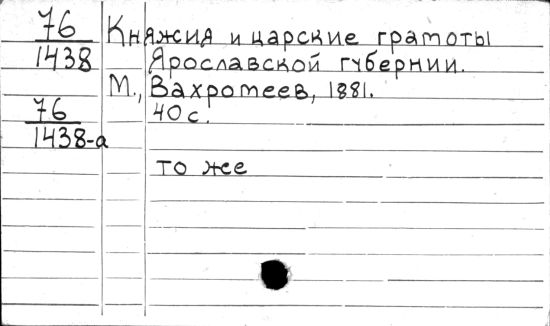 76 Княжия и царские грамоты
1438 Ярославской губернии.
М., Вахромеев, 1881.
76 40 с.
1438-а
то же